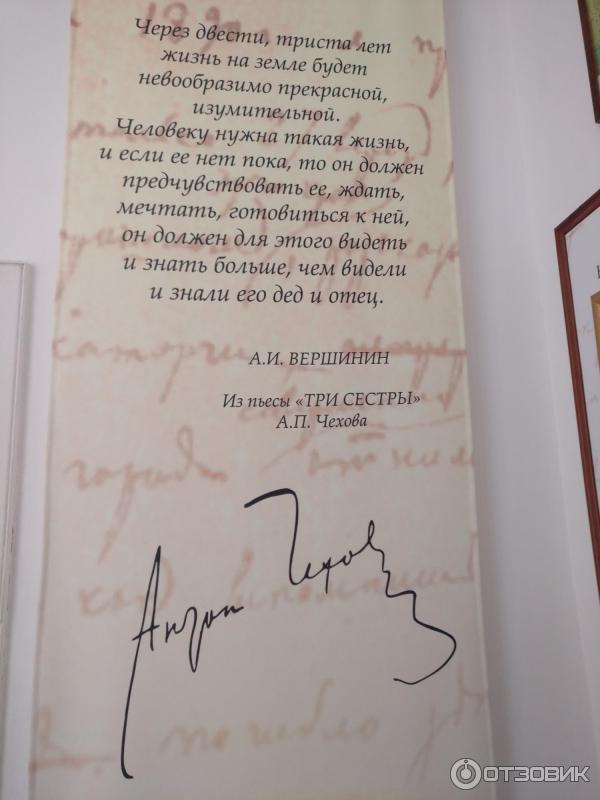 Через двести, триста лет
жизнь на земле будет
невообразимо прекрасной,
изумительной.
Человеку нужна такая жизнь,
и если ее нет пока, то он должен
предчувствовать ее, ждать,
мечтать, готовиться к ней,
он должен для этого видеть
и знать больше, чем видели
и знали его дед и отец.
А.И. ВЕРШИНИН
Из пьесы «ТРИ СЕСТРЫ»
А.П. Чехова
город
Антон Чехов
погибло
ОТЗОВИК